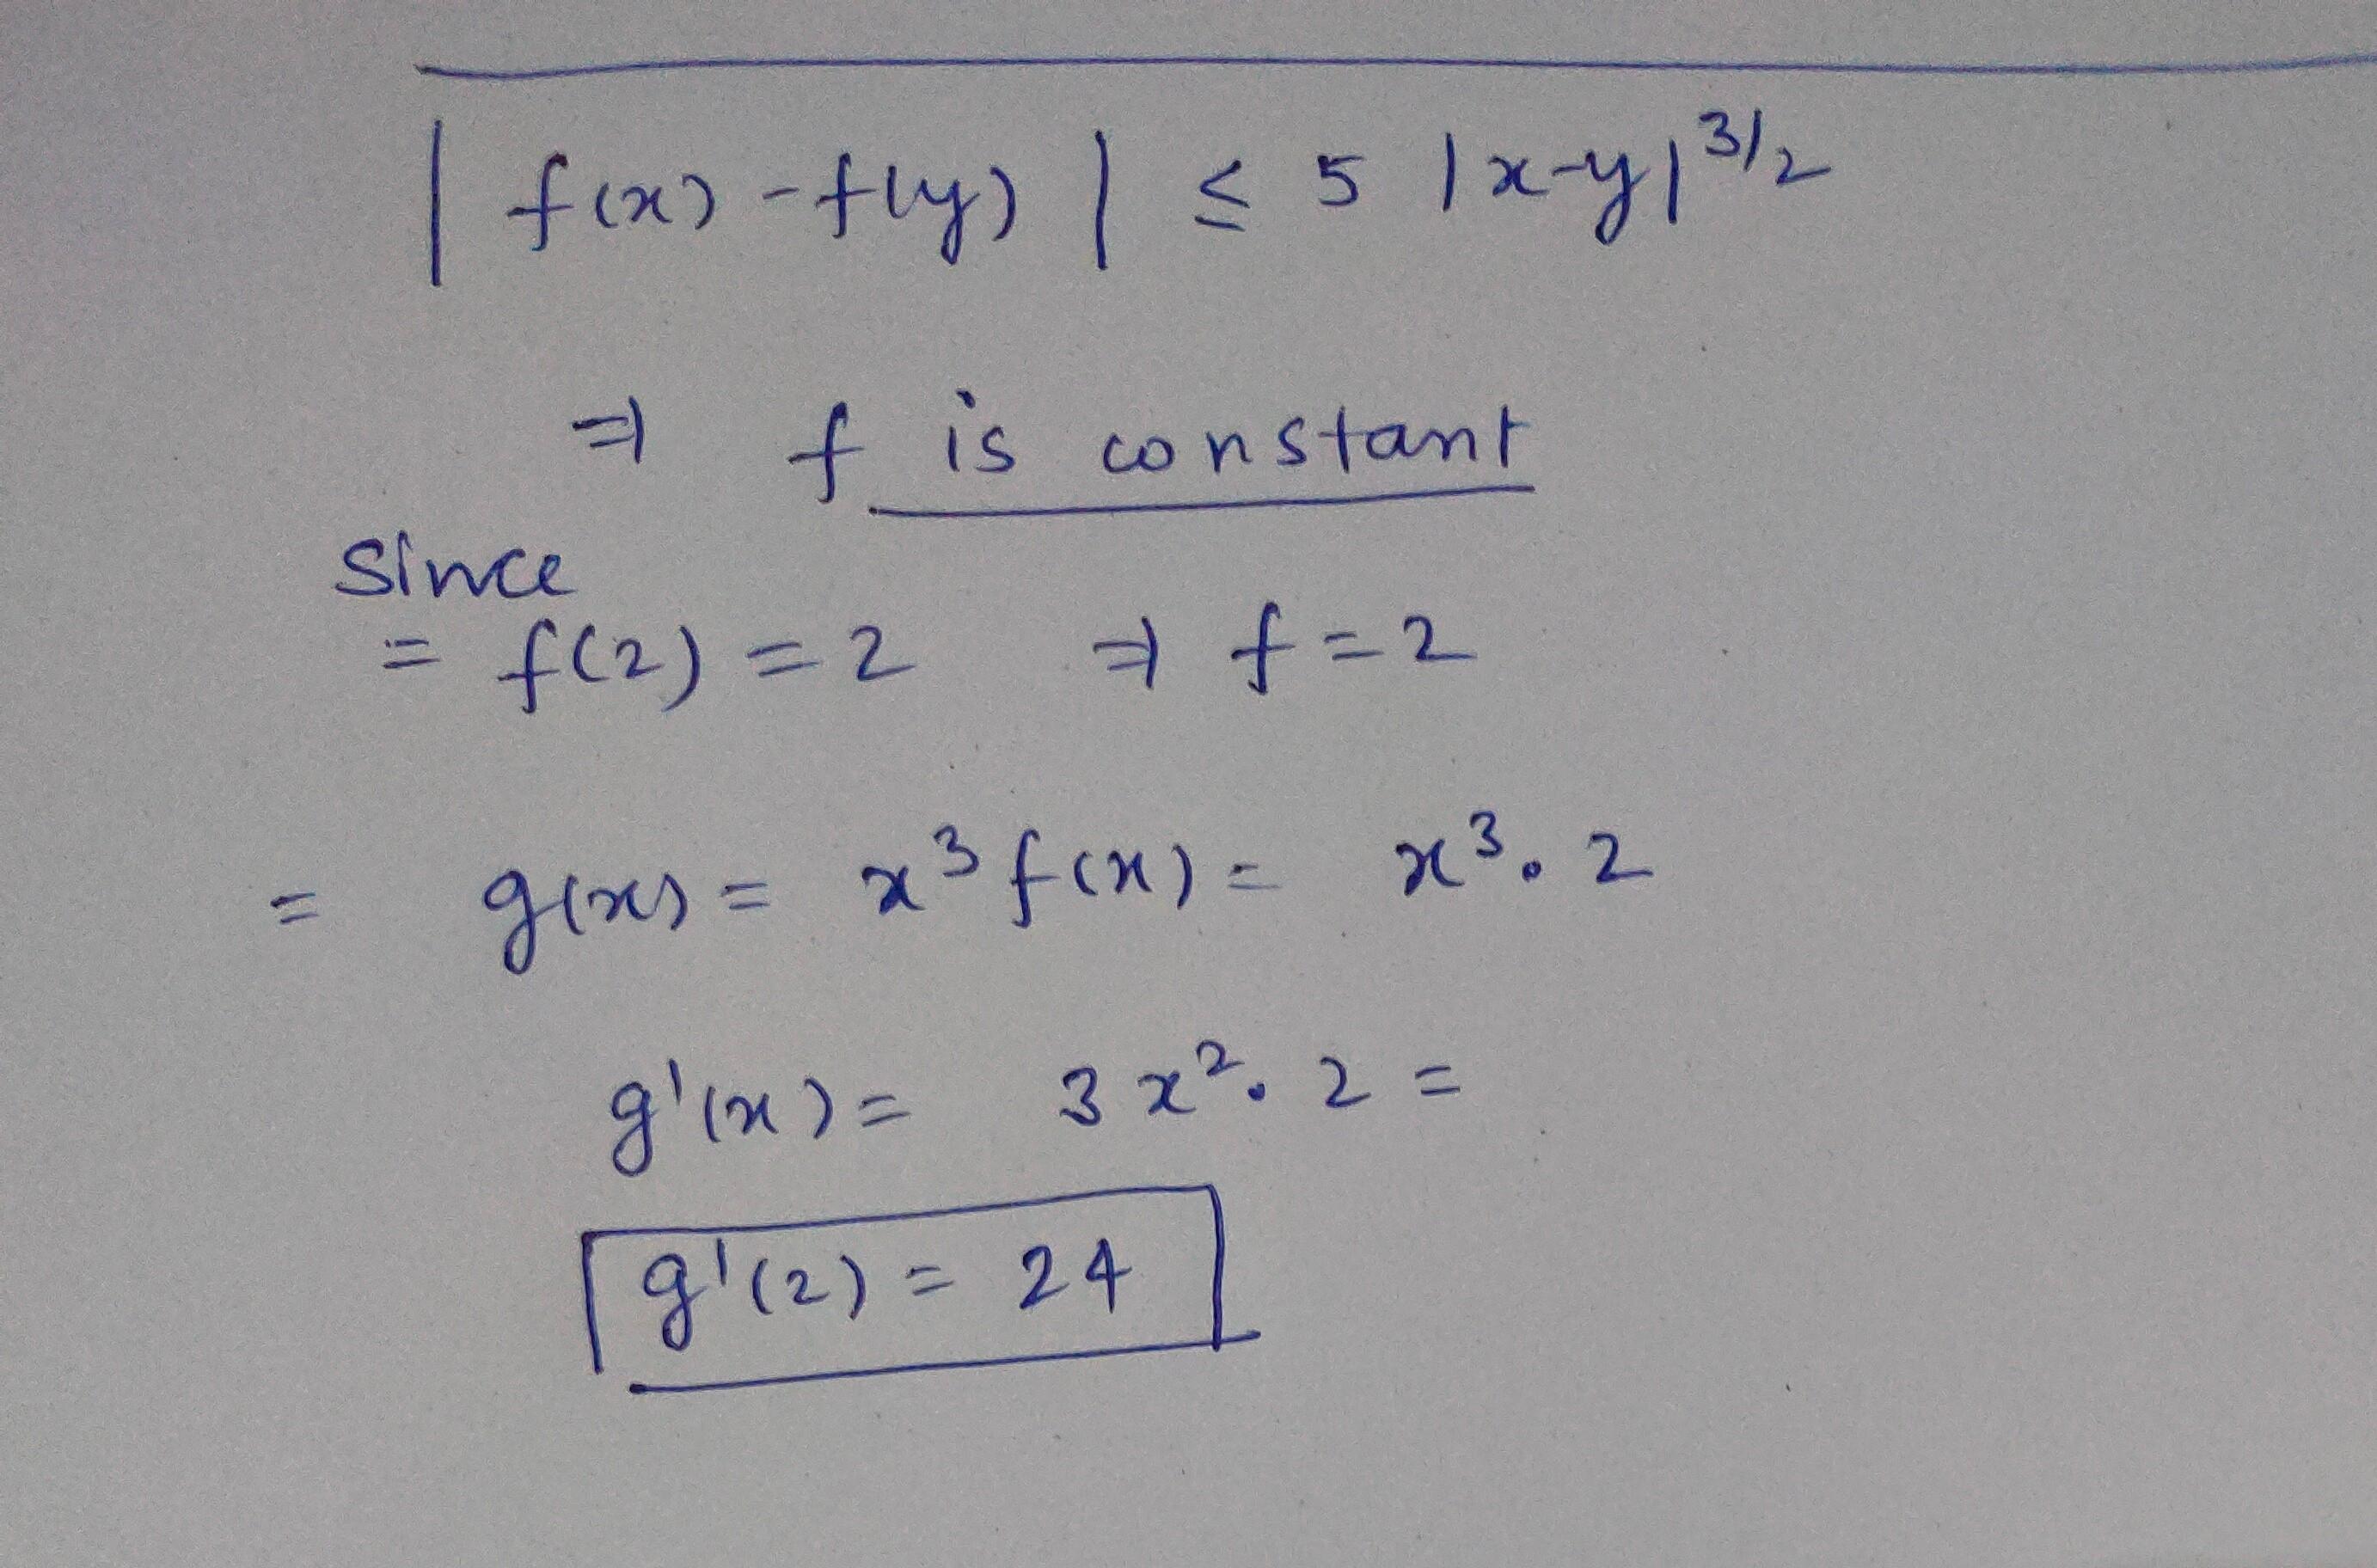 | f(x) - f(y) | ≤ 5 |x-y|^3/2
⇒ f is constant
Since
= f(2) = 2 ⇒ f = 2
= g(x) = x^3 f(x) = x^3 . 2
g'(x) = 3x^2 . 2 =
g'(2) = 24